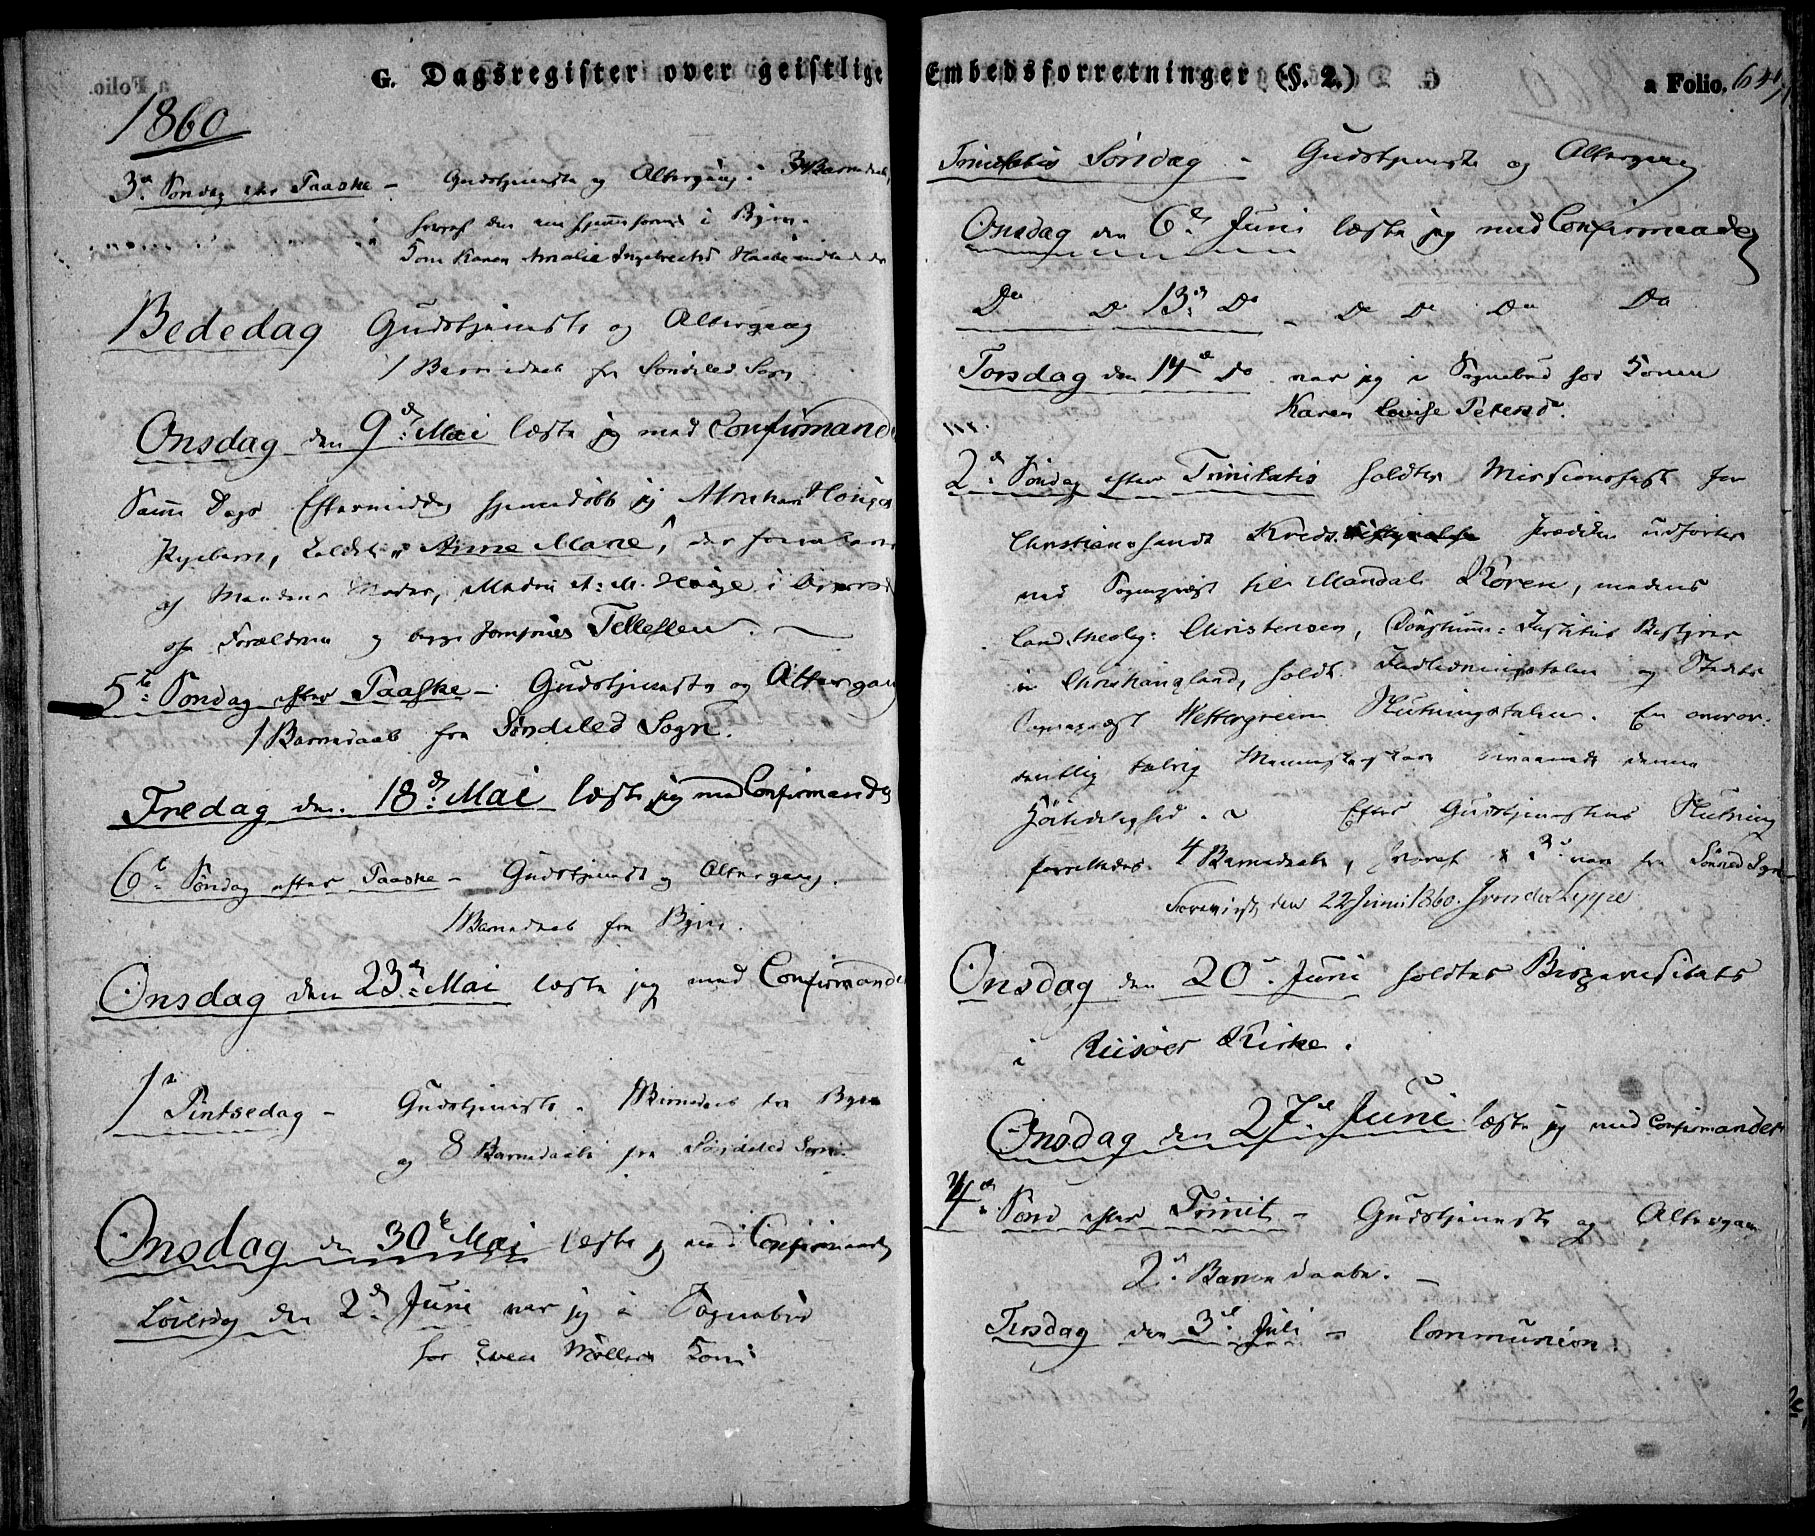 G. Dagsregister over geistlige Embedsforretninger (§. 2.) a Folio. 64
1860
3die Søndag efter Paaske – Gudstjeneste og Altergang. 3 Barnedaab,
hvoraf den ene hjemmefoeret i Byen.
Karen Amalie Ingebretsd
Bededag Gudstjeneste og Altergang
1 Barnedaab fra Søndeled Sogn
Onsdag den 9de Mai læste jeg med Confirmand
Samme Dags Eftermiddag hjemmedøbte jeg Abraham
Pigebarn, kaldet "Anne Marie",
af Mandens Moder, Madm A: M. i
og Forældrene og begge Jomfruer Tellefsen.
5te Søndag efter Paaske – Gudstjeneste og Altergang
1 Barnedaab fra Søndeled Sogn.
Fredag den 18de Mai læste jeg med Confirmandeʀ
6te Søndag efter Paaske – Gudstjeneste og Altergang.
1 Barnedaab fra Byen.
Onsdag den 23de Mai læste jeg med Confirmande
1ste Pintsedag – Gudstjeneste. 1 Barnedaab fra Byen
og 8 Barnedaabe fra Søndeled Sogn.
Onsdag den 30te Mai læste jeg med Confirmander
Løverdag den 2den Juni var jeg i Sognebud
for Møllers Kone
Trinitatis Søndag – Gudstjeneste og Altergang
Onsdag den 6te Juni læste jeg med Confirmander
Do D 13de Do – Do Do Do Do
Torsdag den 14de Do var jeg i Sognebud hos Konen
Karen Lovise Petersdr.
2den Søndag efter Trinitatis holdtes Missionsfest for
Christianssands Kreds. Prædiken udførtes
ved Sognepræst til Mandal Koren, medens
Cand. theolog: Christensen, Døvstumme-Institus Bestyrer
i Christianssand, holdt Indledningstalen og Stedets
Sognepræst Wettergreen Slutningstalen. En overor-
dentlig talrig Menneskeskare bivaanede denne
Høitidelighed. – Efter Gudstjenestens Slutning
forrettedes 4 Barnedaabe, hvoraf 3 vare fra Sønned Sogn
Foreviist, den 22 Juni 1860. J. von der Lippe
Onsdag den 20de Juni holdtes Bispevisitats
i Riisøer Kirke.
Onsdag den 27de Juni læste jeg med Confirmander
4de Sønd efter Trinit – Gudstjeneste og Altergang
2de Barnedaabe. –
Tirsdag den 3die Juli – Communion.